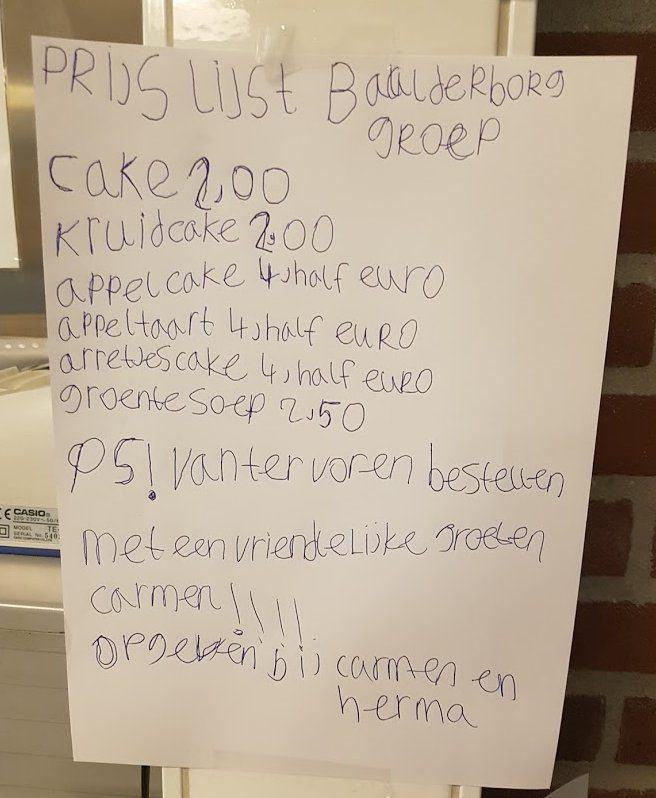 PRIJS LIJST Baalderborg
groep
cake 2,00
kruidcake 2.00
appelcake 4,half euro
appeltaart 4,half euro
arretjescake 4,half euro
groentesoep 2,50
PS! van ter voren bestellen
met een vriendelijke groeten
carmen!!!!
opgeven bij carmen en
herma
CE CASIO
220-230V
MODEL TE-
SERIAL No.